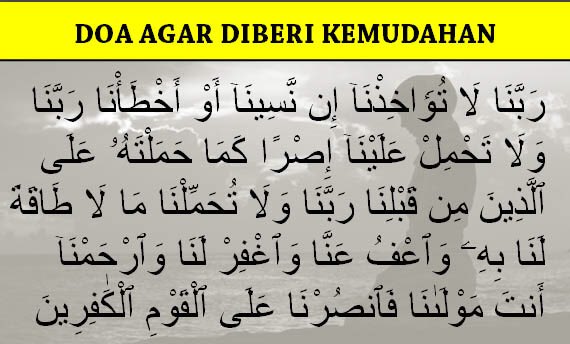 DOA AGAR DIBERI KEMUDAHAN
رَبَّنَا لَا تُؤَاخِذْنَآ إِن نَّسِينَآ أَوْ أَخْطَأْنَا رَبَّنَا
وَلَا تَحْمِلْ عَلَيْنَآ إِصْرًا كَمَا حَمَلْتَهُۥ عَلَى
ٱلَّذِينَ مِن قَبْلِنَا رَبَّنَا وَلَا تُحَمِّلْنَا مَا لَا طَاقَةَ
لَنَا بِهِۦ وَٱعْفُ عَنَّا وَٱغْفِرْ لَنَا وَٱرْحَمْنَآ
أَنتَ مَوْلَىٰنَا فَٱنصُرْنَا عَلَى ٱلْقَوْمِ ٱلْكَٰفِرِينَ